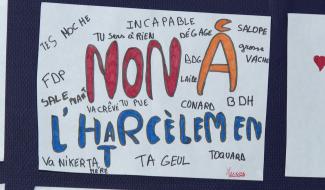 T'ES MOCHE
INCAPABLE
TU SERS À RIEN
DÉGAGE
SALOPE
grosse VACHE
NON À
FDP
BDG
LAIDE
SALE
VA CRÊVE
TU PUE
CONARD
BDH
L'HARCÈLEMENT
VA NIKER TA MÈRE
TA GEUL
TOQUARD